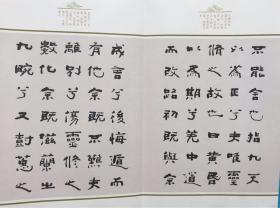 不能舍也指九天
以為正兮夫唯靈
修之故也曰黃昏
以為期兮羌中道
而改路初既與余
成言兮後悔遁而
有他余既不難夫
離別兮傷靈修之
數化余既滋蘭之
九畹兮又樹蕙之